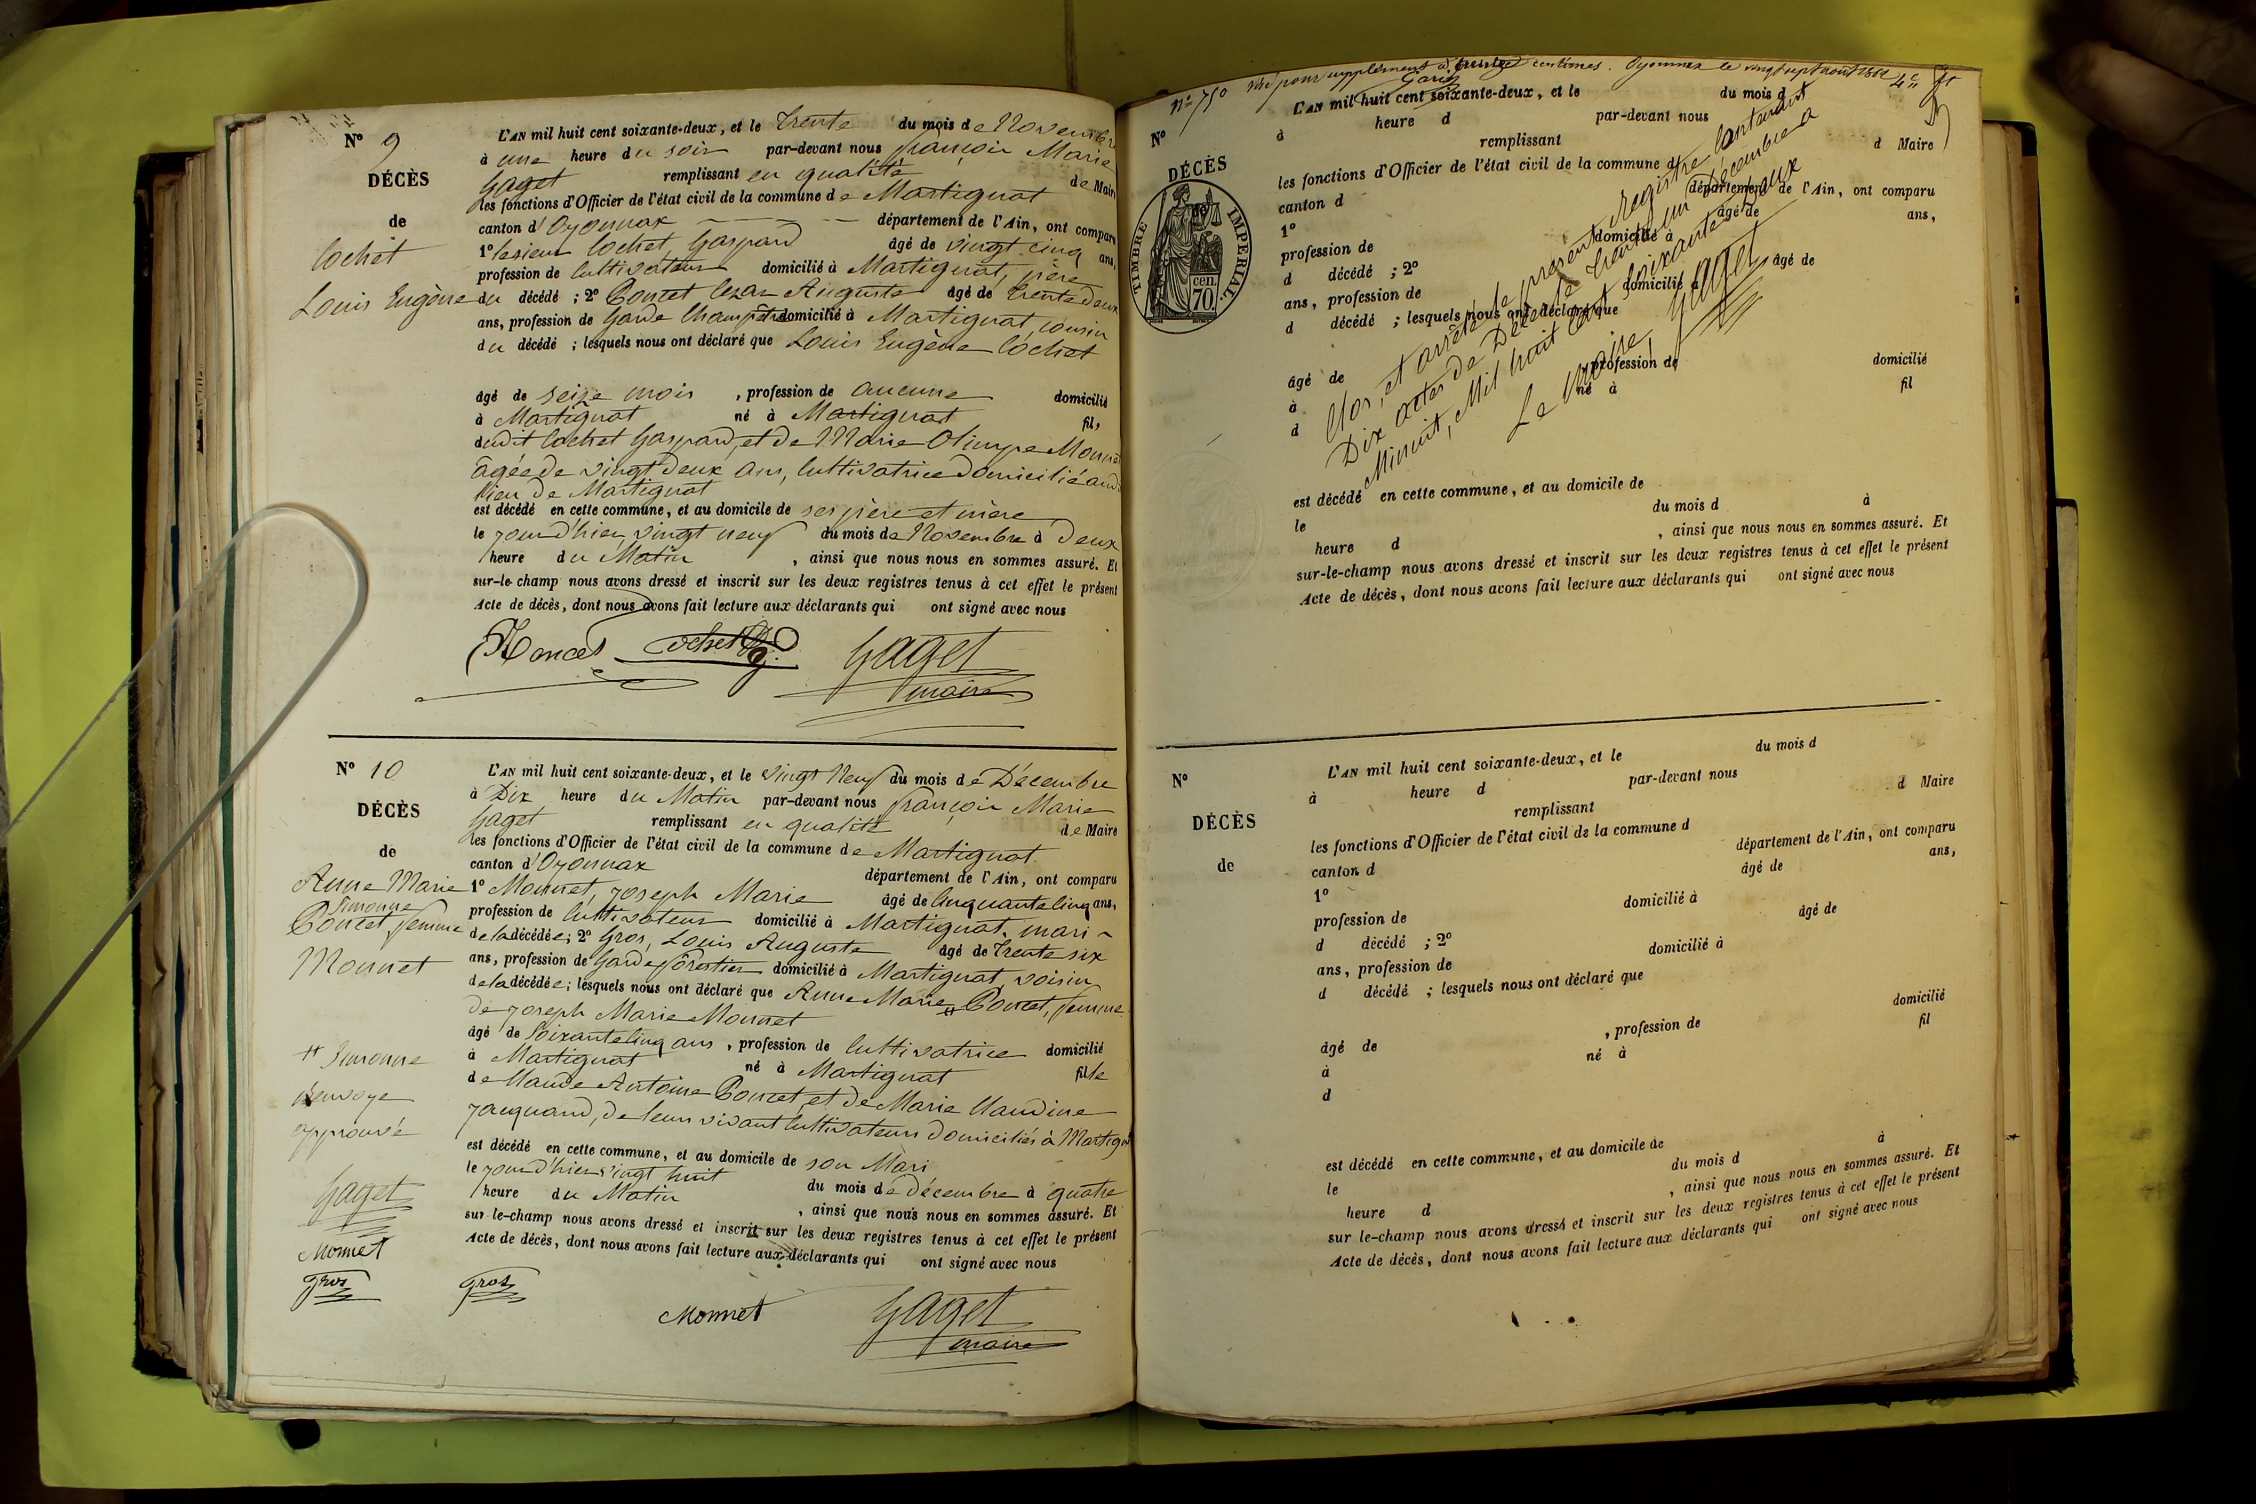 N° 9
DÉCÈS
de
Cochet
Louis Eugène
L'AN mil huit cent soixante-deux, et le Trente du mois de Novembre
à une heure du soir par-devant nous françois Marie
Gaget remplissant en qualité de Maire
les fonctions d'Officier de l'état civil de la commune de Martignat
canton d'Oyonnax département de l'Ain, ont comparu
1° le sieur Cochet, Gaspard âgé de vingt cinq ans,
profession de Cultivateur domicilié à Martignat, père
du décédé ; 2° Poncet Cezar Auguste âgé de Trente deux
ans, profession de Garde Champêtre domicilié à Martignat, cousin
du décédé ; lesquels nous ont déclaré que Louis Eugène Cochet
âgé de seize mois , profession de aucune domicilié
à Martignat né à Martignat fils
dudit Cochet Gaspard, et de Marie Olimpe Monnet
âgée de vingt deux ans, Cultivatrice domiciliée audit
lieu de Martignat
est décédé en cette commune, et au domicile de ses père et mère
le jour d'hier, vingt neuf du mois de Novembre à deux
heure du Matin , ainsi que nous nous en sommes assuré. Et
sur-le-champ nous avons dressé et inscrit sur les deux registres tenus à cet effet le présent
Acte de décès, dont nous avons fait lecture aux déclarants qui ont signé avec nous
Poncet Cochet Gaget
maire
N° 10
DÉCÈS
de
Anne Marie
Simonne
Poncet, femme
Monnet
L'AN mil huit cent soixante-deux, et le vingt Neuf du mois de Décembre
à Dix heure du Matin par-devant nous françois Marie
Gaget remplissant en qualité de Maire
les fonctions d'Officier de l'état civil de la commune de Martignat
canton d'Oyonnax département de l'Ain, ont comparu
1° Monnet, Joseph Marie âgé de Cinquante Cinq ans,
profession de Cultivateur domicilié à Martignat, mari
de la décédée ; 2° Gros, Louis Auguste âgé de Trente six
ans, profession de Garde forestier domicilié à Martignat, voisin
de la décédée ; lesquels nous ont déclaré que Anne Marie # Poncet, femme
de Joseph Marie Monnet
âgé de Soixante Cinq ans , profession de Cultivatrice domicilié
à Martignat né à Martignat fille
de Claude Antoine Poncet, et de Marie Claudine
Jacquand, de leur vivant Cultivateurs domiciliés à Martignat
est décédé en cette commune, et au domicile de son Mari
le jour d'hier vingt huit du mois de décembre à quatre
heure du Matin , ainsi que nous nous en sommes assuré. Et
sur le-champ nous avons dressé et inscrit sur les deux registres tenus à cet effet le présent
Acte de décès, dont nous avons fait lecture aux déclarants qui ont signé avec nous
# Simonne
renvoye
approuvé
Gaget
Monnet
Gros
Gros Monnet Gaget
maire
N° 750 visé pour supplément à trente centimes. Oyonnax le vingt sept août 1862
N°
DÉCÈS
de
TIMBRE IMPERIAL.
70 cen.
L'AN mil huit cent soixante-deux, et le du mois d
à heure d par-devant nous
remplissant d Maire
les fonctions d'Officier de l'état civil de la commune d
canton d département de l'Ain, ont comparu
1° âgé de ans,
profession de domicilié à
d décédé ; 2° âgé de
ans, profession de domicilié à
d décédé ; lesquels nous ont déclaré que
âgé de , profession de domicilié
à né à fil
d
Clos, et arrêté le présent Registre Contenant
Dix actes de Décès le Trente un Décembre à
Minuit, Mil huit Cent soixante deux
Le Maire, Gaget
est décédé en cette commune, et au domicile de
le du mois d à
heure d , ainsi que nous nous en sommes assuré. Et
sur-le-champ nous avons dressé et inscrit sur les deux registres tenus à cet effet le présent
Acte de décès, dont nous avons fait lecture aux déclarants qui ont signé avec nous
N°
DÉCÈS
de
L'AN mil huit cent soixante-deux, et le du mois d
à heure d par-devant nous
remplissant d Maire
les fonctions d'Officier de l'état civil de la commune d
canton d département de l'Ain, ont comparu
1° âgé de ans,
profession de domicilié à
d décédé ; 2° âgé de
ans, profession de domicilié à
d décédé ; lesquels nous ont déclaré que
âgé de , profession de domicilié
à né à fil
d
est décédé en cette commune, et au domicile de
le du mois d à
heure d , ainsi que nous nous en sommes assuré. Et
sur le-champ nous avons dressé et inscrit sur les deux registres tenus à cet effet le présent
Acte de décès, dont nous avons fait lecture aux déclarants qui ont signé avec nous